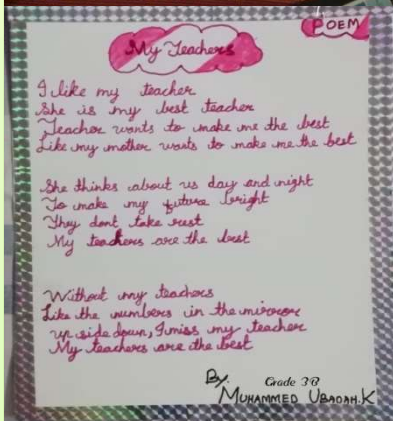 POEM
My Teachers
I like my teacher
She is my best teacher
Teacher wants to make me the best
Like my mother wants to make me the best
She thinks about us day and night
To make my future bright
They dont take rest
My teachers are the best
Without my teachers
Like the numbers in the mirror
up side down, I miss my teacher
My teachers are the best
By.
Grade 3B
MUHAMMED UBADAH.K